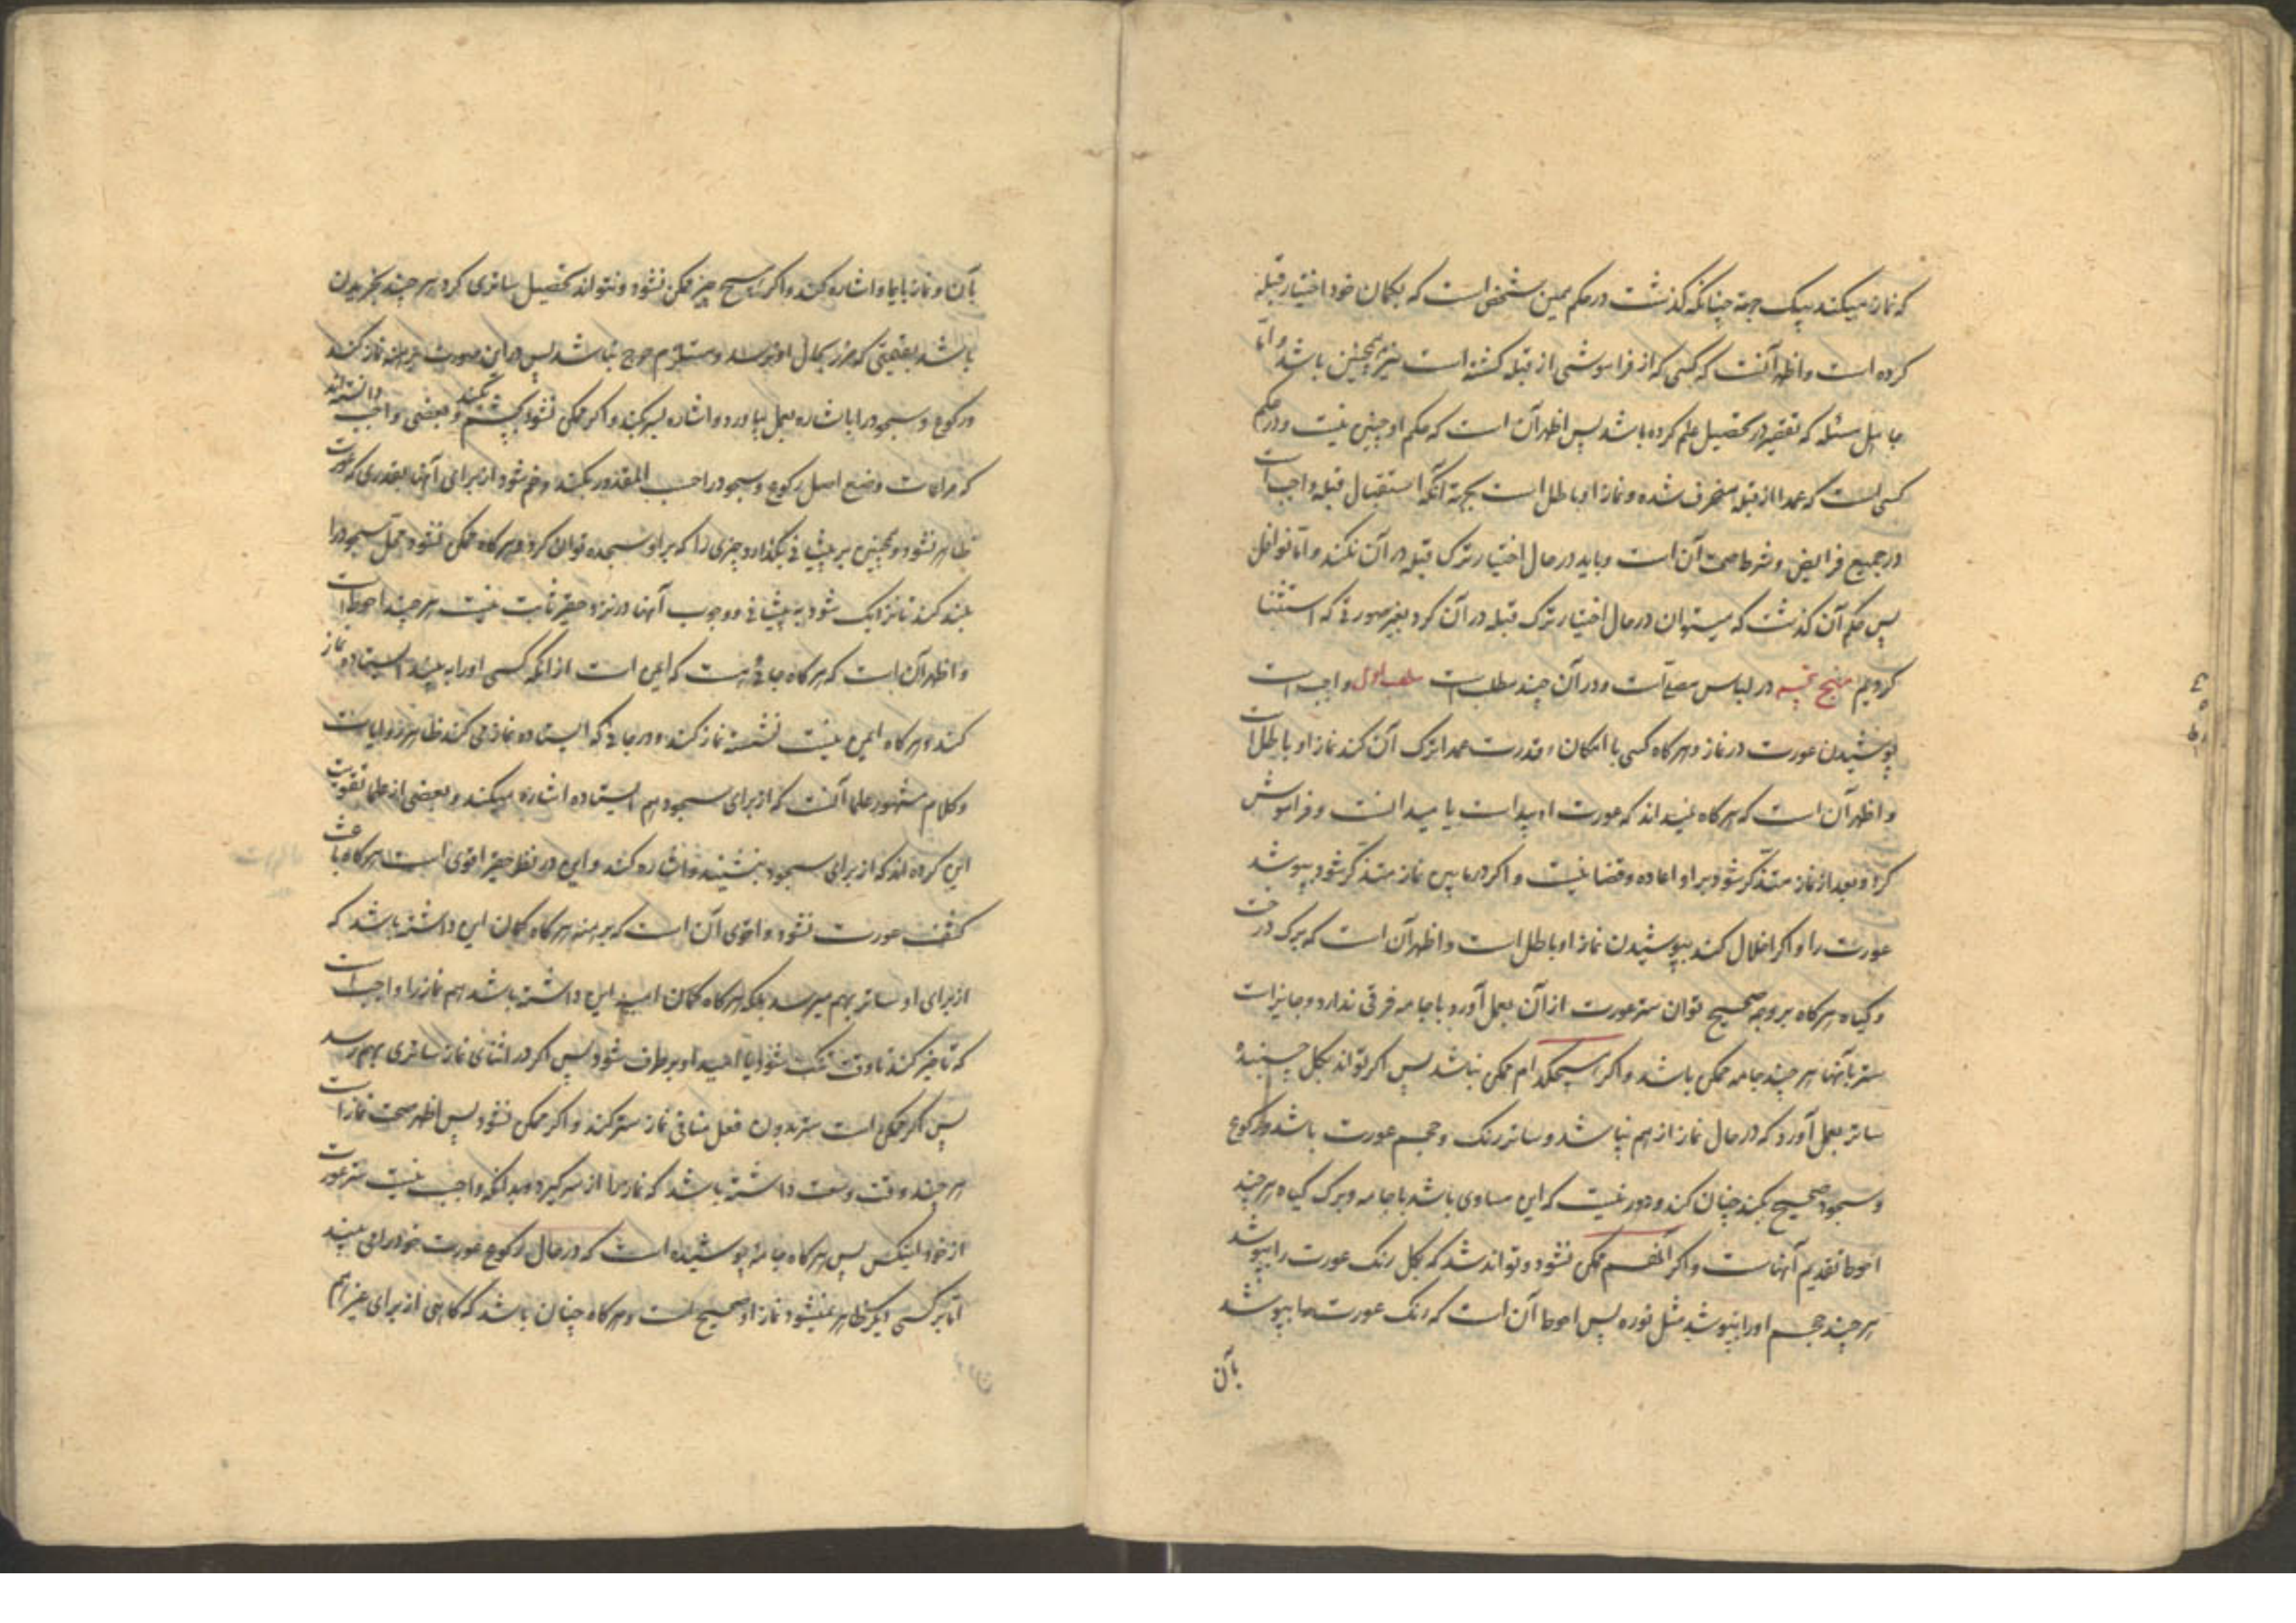 که نماز میکند بیک جهة چنانکه گذشت در حکم همین شخصی است که بکمان خود اختیار قبله
کرده است و اظهر آنست که کسی که از فراموشی از قبله کشته است نیز همچنین باشد و اما
جاهل مسئله که تقصیر در تحصیل علم کرده باشد پس اظهر آن است که حکم او چنین نیست و در حکم
کسی است که عمدا از قبله منحرف شده و نماز او باطل است بجهة آنکه استقبال قبله واجب است
در جمیع فرایض و شرط صحت آن است و باید در حال اختیار ترک قبله در آن نکند و اما نوافل
پس حکم آن گذشت که میتوان در حال اختیار ترک قبله در آن کرد بغیر صورتی که استثنا
کردیم منهج در لباس مصلی است و در آن چند مطلب است مطلب اول واجب است
پوشیدن عورت در نماز و هرکاه کسی با امکان و قدرت عمدا ترک آن کند نماز او باطل است
و اظهر آن است که هرکاه نمیداند که عورت او پیداست یا میدانست و فراموش
کرد و بعد از نماز متذکر شود بر او اعاده و قضا نیست و اکر در مابین نماز متذکر شود بپوشد
عورت را و اکر اخلال کند بپوشیدن نماز او باطل است و اظهر آن است که برک درخت
و کیاه هرکاه بر وجه صحیح توان ستر عورت از آن بعمل آورد با جامه فرقی ندارد و جایز است
ستر بآنها هر چند جامه ممکن باشد و اکر هیچکدام ممکن نباشد پس اکر تواند بکل چسبنده
ساتر بعمل آورد که در حال نماز از هم نپاشد و ساتر رنک و حجم عورت باشد و رکوع
و سجود صحیح بکند چنان کند و دور نیست که این مساوی باشد با جامه و برک کیاه هر چند
احوط تقدیم آنهاست و اکر آنهم ممکن نشود و تواند شد که بکل رنک عورت را بپوشد
هر چند حجم او را نپوشد مثل نوره پس احوط آن است که رنک عورت را بپوشد
بآن
بآن و نماز بایما و اشاره کند و اکر هیچ چیز ممکن نشود و نتواند تحصیل ساتری کرد هر چند بخریدن
باشد بقیمتی که ضرر بحال او نرسد و مستلزم حرج نباشد پس در این صورت برهنه نماز کند
و رکوع و سجود را باشاره بعمل بیاورد و اشاره بسر کند و اکر ممکن نشود بچشم بکند و بعضی واجب دانسته‌اند
که مراعات وضع اصل رکوع و سجود را حسب المقدور بکند و خم شود از برای آنها بقدری که عورت
ظاهر نشود و همچنین بر پیشانی بکذارد چیزی را که بر او سجده توان کرد و هرکاه ممکن نشود محل سجود را
بلند کند تا نزدیک شود به پیشانی و وجوب آنها در نزد حقیر ثابت نیست هر چند احوط است
و اظهر آن است که هرکاه جائی هست که ایمن است از آنکه کسی او را به بیند ایستاده نماز
کند و هرکاه ایمن نیست نشسته نماز کند و در جائی که ایستاده نماز می کند ظاهر روایات
و کلام مشهور علما آنست که از برای سجود هم ایستاده اشاره میکند و بعضی از علما تقویت
این کرده اند که از برای سجود بنشیند و اشاره کند و این در نظر حقیر اقوی است هرکاه باعث
کشف عورت نشود و اقوی آن است که برهنه هرکاه کمان این داشته باشد که
از برای او ساتر بهم میرسد بلکه هرکاه کمان امید این داشته باشد هم نماز را واجب است
که تاخیر کند تا وقت تنک شود یا امید او بر طرف شود پس اکر در اثنای نماز ساتری بهم رسد
پس اکر ممکن است ستر بدون فعل منافی نماز ستر کند و اکر ممکن نشود پس اظهر صحت نماز است
هر چند وقت وسعت داشته باشد که نماز را از سر کیرد و بدانکه واجب نیست ستر عورت
از خود پس هرکاه جامه پوشیده است که در حال رکوع عورت خود را می بیند
اما بر کسی دیکر ظاهر نمیشود نماز او صحیح است و هرکاه چنان باشد که کاهی از برای غیر هم